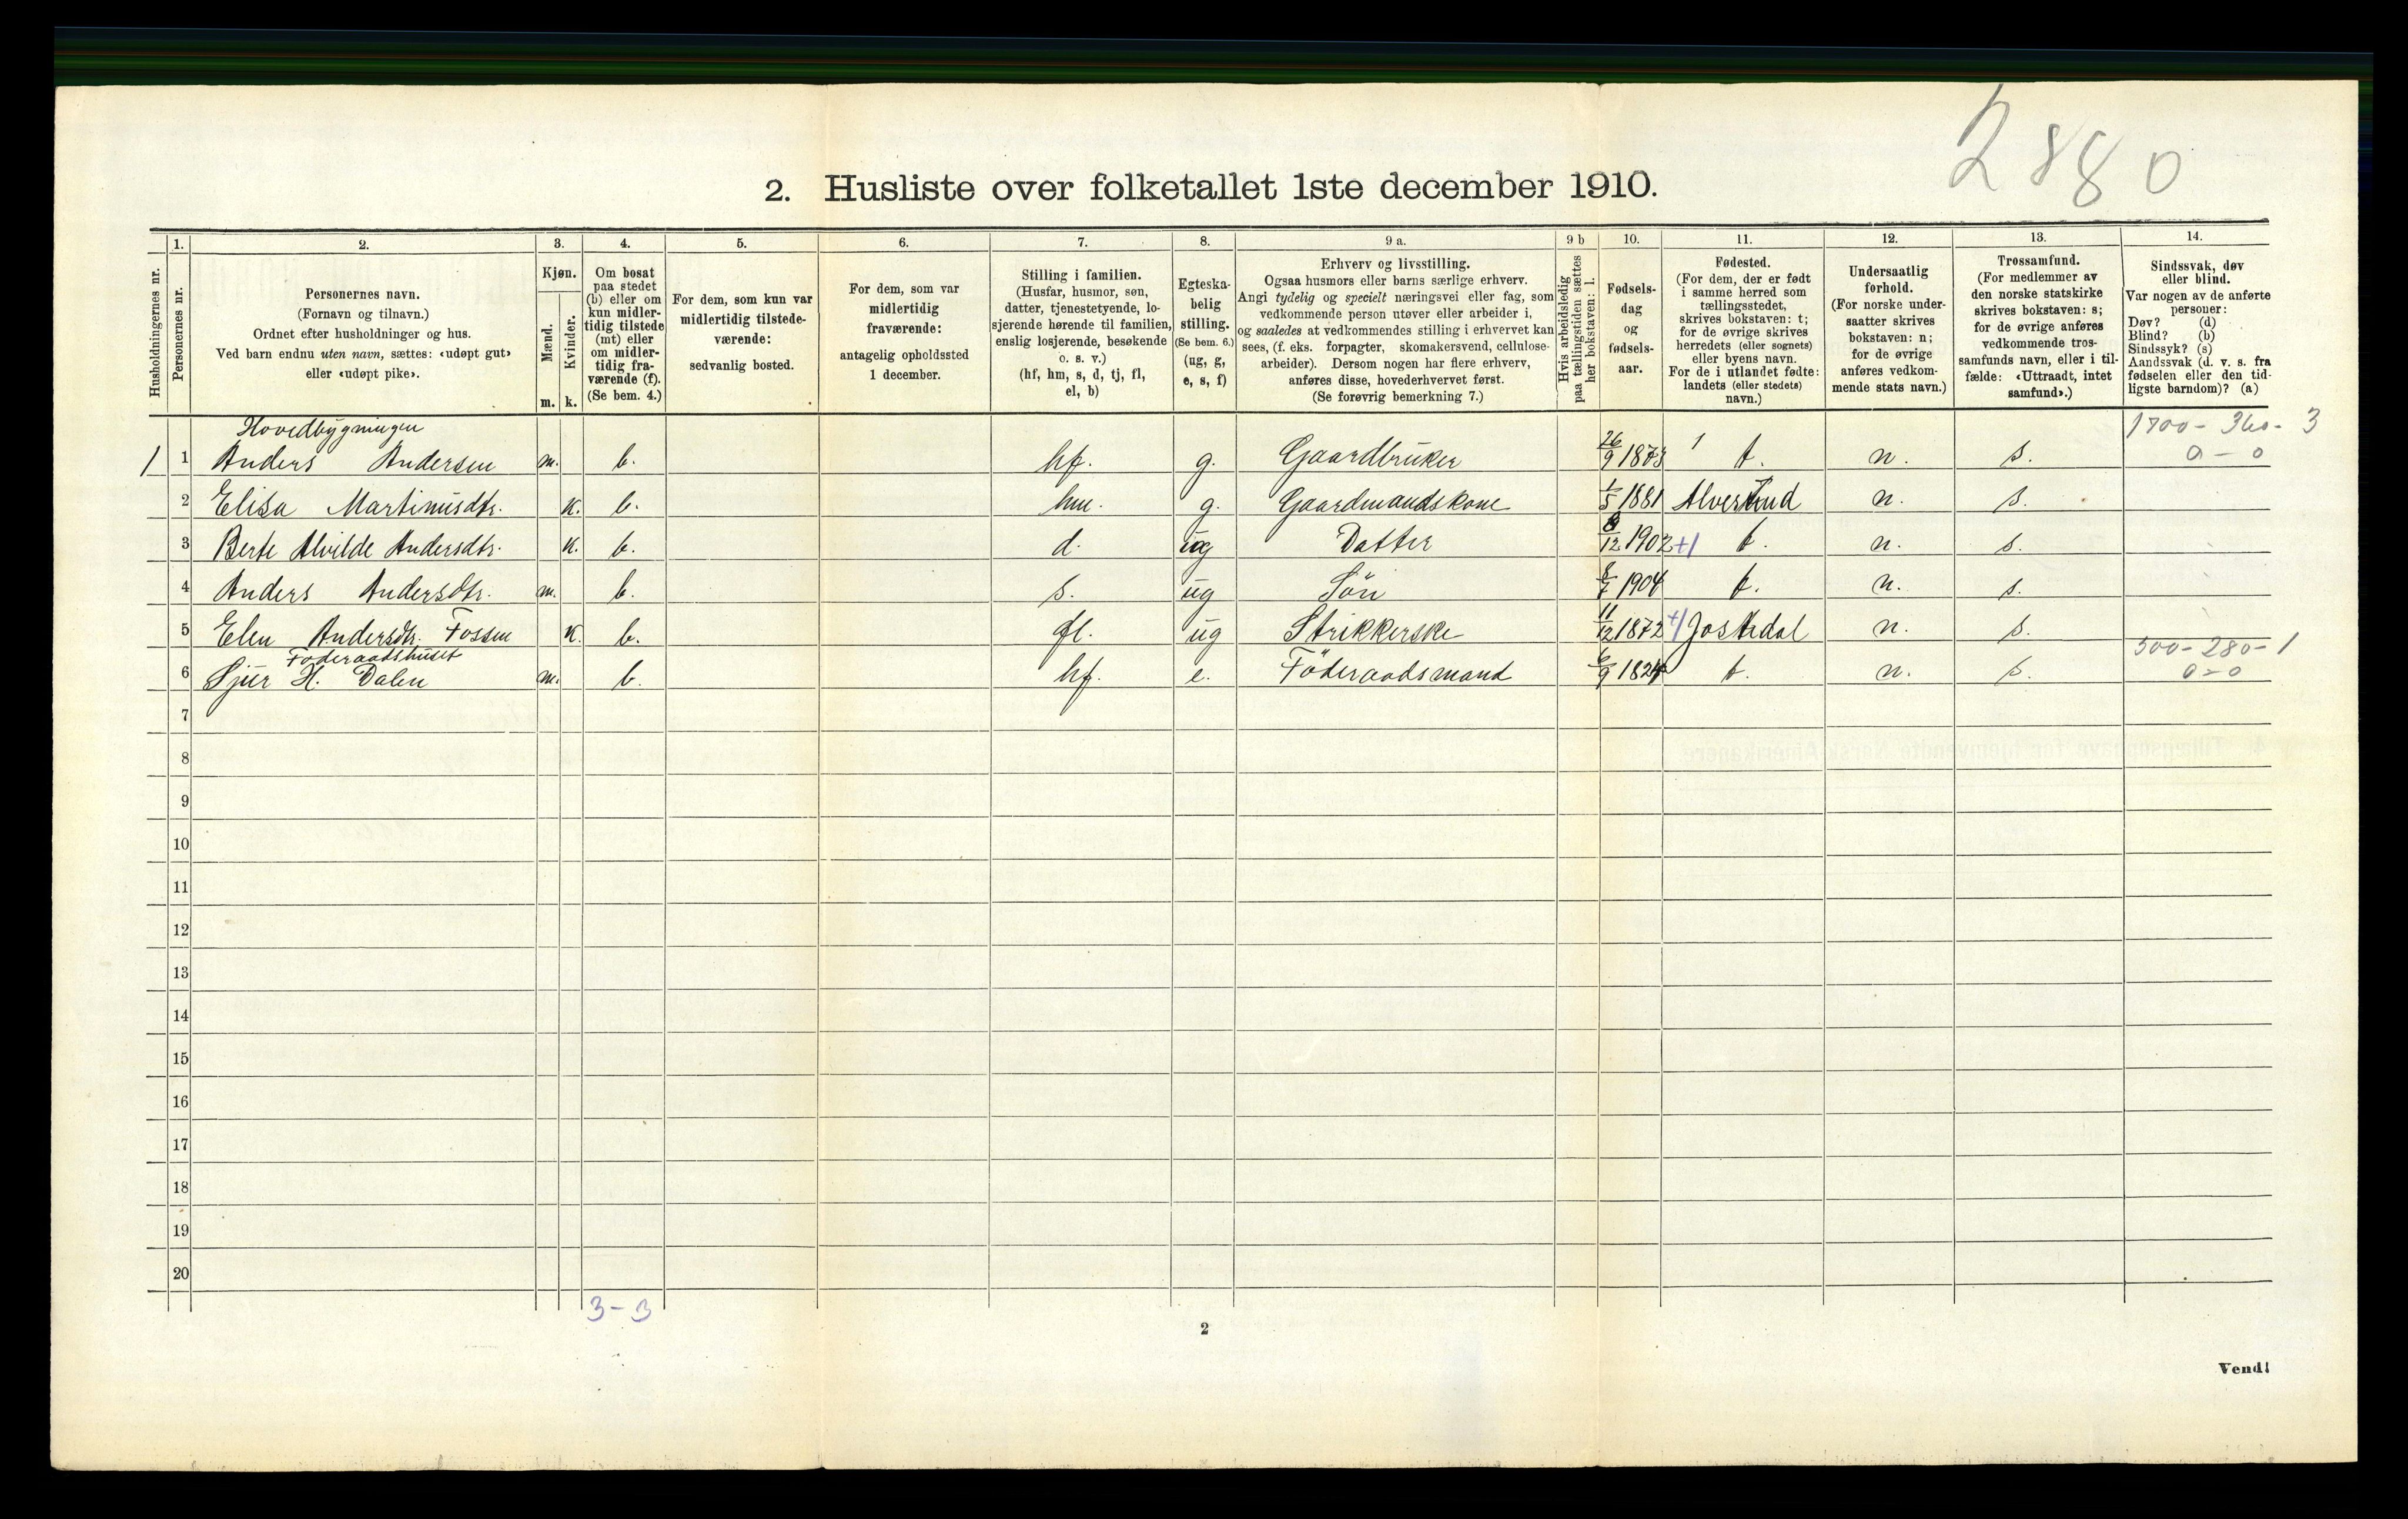 2880
2. Husliste over folketallet 1ste december 1910.
Husholdningernes nr.
1.
Personernes nr.
2.
Personernes navn.
(Fornavn og tilnavn.)
Ordnet efter husholdninger og hus.
Ved barn endnu uten navn, sættes: «udøpt gut»
eller «udøpt pike».
3.
Kjøn.
Mænd.
Kvinder.
m. k.
4.
Om bosat
paa stedet
(b) eller om
kun midler-
tidig tilstede
(mt) eller
om midler-
tidig fra-
værende (f).
(Se bem. 4.)
5.
For dem, som kun var
midlertidig tilstede-
værende:
sedvanlig bosted.
6.
For dem, som var
midlertidig
fraværende:
antagelig opholdssted
1 december.
7.
Stilling i familien.
(Husfar, husmor, søn,
datter, tjenestetyende, lo-
sjerende hørende til familien,
enslig losjerende, besøkende
o. s. v.)
(hf, hm, s, d, tj, fl,
el, b)
8.
Egteska-
belig
stilling.
(Se bem. 6.)
(ug, g,
e, s, f)
9 a.
Erhverv og livsstilling.
Ogsaa husmors eller barns særlige erhverv.
Angi tydelig og specielt næringsvei eller fag, som
vedkommende person utøver eller arbeider i,
og saaledes at vedkommendes stilling i erhvervet kan
sees, (f. eks. forpagter, skomakersvend, cellulose-
arbeider). Dersom nogen har flere erhverv,
anføres disse, hovederhvervet først.
(Se forøvrig bemerkning 7.)
9 b
Hvis arbeidsledig
paa tællingstiden sættes
her bokstaven: l.
10.
Fødsels-
dag
og
fødsels-
aar.
11.
Fødested.
(For dem, der er født
i samme herred som
tællingsstedet,
skrives bokstaven: t;
for de øvrige skrives
herredets (eller sognets)
eller byens navn.
For de i utlandet fødte:
landets (eller stedets)
navn.)
12.
Undersaatlig
forhold.
(For norske under-
saatter skrives
bokstaven: n;
for de øvrige
anføres vedkom-
mende stats navn.)
13.
Trossamfund.
(For medlemmer av
den norske statskirke
skrives bokstaven: s;
for de øvrige anføres
vedkommende tros-
samfunds navn, eller i til-
fælde: «Uttraadt, intet
samfund».)
14.
Sindssvak, døv
eller blind.
Var nogen av de anførte
personer:
Døv? (d)
Blind? (b)
Sindssyk? (s)
Aandssvak (d. v. s. fra
fødselen eller den tid-
ligste barndom)? (a)
Hovedbygningen 1700 - 360 - 3
1 1 Anders Andersen m. b. hf. g. Gaardbruker 26/9 1873 1 t. n. s. 0 - 0
2 Elisa Martinusdtr. K. b. hm. g. Gaardmandskone 1/5 1881 n. s.
3 Berte Alvilde Andersdtr. K. b. d. ug Datter 8/12 1902 +1 t. n. s.
4 Anders Andersdtr. m. b. s. ug Sön 8/7 1904 t. n. s.
5 Elen Andersdtr. Fossen K. b. fl. ug Strikkerske 11/12 1872 +1 Jostedal n. s.
Föderaadshuset 500 - 280 - 1
6 Sjur H. Dalen m. b. hf. e. Föderaadsmand 6/9 1824 t. n. s. 0 - 0
7
8
9
10
11
12
13
14
15
16
17
18
19
20
3 - 3
2
Vend!